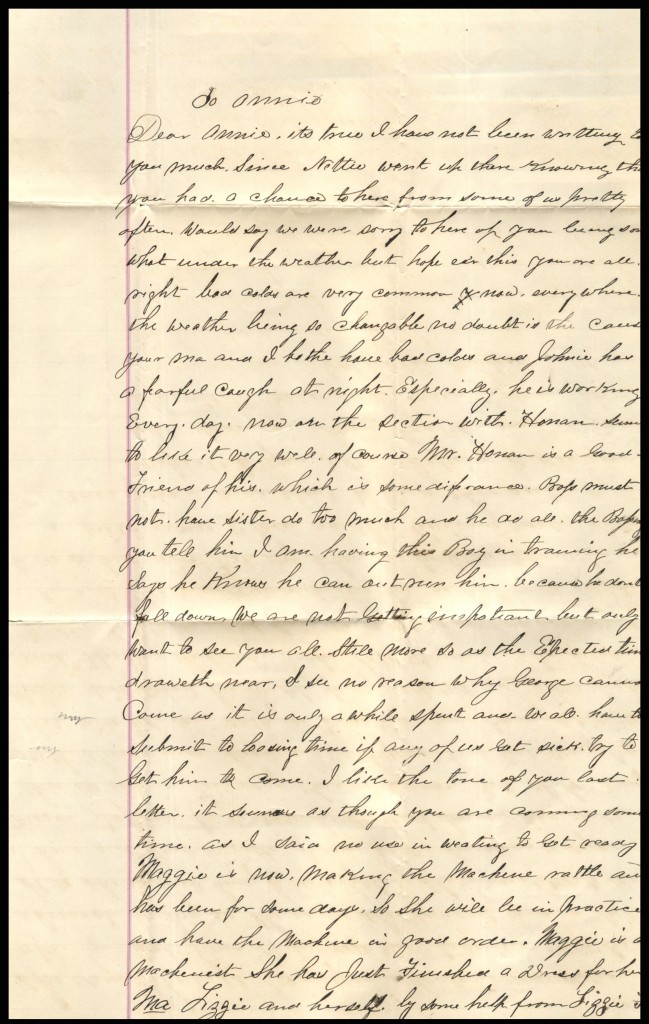 To Annie
Dear Annie. its true I have not been writting to
you much. Since Nettie went up there Knowing th
you had a chance to here from some of us pretty
often, Would say we were sorry to here of you being so
what under the weather but hope ear this you are all
right bad colds are very common now. everywhere.
the weather being so changable no doubt is the caus
your ma and I bothe have bad colds and Johnie has
a fearful caugh at night. Especially. he is working
Every. day. now on the section with. Honan. seem
to like it very well. of course Mr. Honan is a Good
Friend of his. which is some difirance. Boss must
not. have sister do too much and he do all. the
you tell him I am. having this Boy in training he
says he Knows he can out run him. because he dont
fall down, We are not Getting impatiant. but only
want to see you all. Still more so as the Expected tim
draweth near, I see no reason why George canno
Come as it is only a while spent and. We all. have to
submit to loosing time if any of us Get sick. try to
Get him to come. I like the tone of you last
letter. it sounds as though you are coming some
time. as I said no use in weating to Get ready
Maggie is now. making the Machene rattle an
has been for some days. So she will be in practice
and have the Machine in good order. Maggie is a
Machenist She has Just Finished a Dress for her
Ma Lizzie and herself. by some help from Lizzie